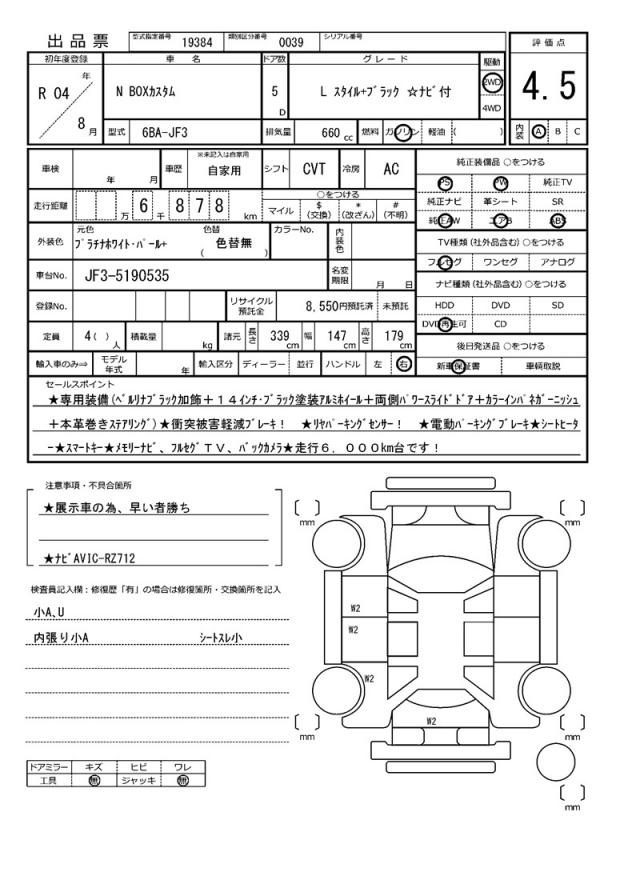 出品票 型式指定番号 19384 類別区分番号 0039 シリアル番号
評価点
4.5
内装 A B C
初年度登録 車名 ドア数 グレード 駆動
R 04 年 8 月
N BOXカスタム 5 D L スタイル+ブラック ☆ナビ付 2WD 4WD
型式 6BA-JF3 排気量 660 cc 燃料 ガソリン 軽油 ( )
車検 年 月 車歴 ※未記入は自家用 自家用 シフト CVT 冷房 AC
走行距離 6 万 8 千 7 8 km
○をつける
マイル $ (交換) * (改ざん) # (不明)
外装色 元色 プラチナホワイト・パール+ 色替 ( 色替無 ) カラーNo. 内装色
車台No. JF3-5190535 名変期限 月 日
登録No. リサイクル預託金 8,550円預託済 未預託
定員 4( ) 人 積載量 kg 諸元 長さ 339 cm 幅 147 cm 高さ 179 cm
輸入車のみ⇒ モデル年式 年 輸入区分 ディーラー 並行 ハンドル 左 右
純正装備品 ○をつける
PS PW 純正TV
純正ナビ 革シート SR
純正AW エアB ABS
TV種類 (社外品含む) ○をつける
フルセグ ワンセグ アナログ
ナビ種類 (社外品含む) ○をつける
HDD DVD SD
DVD再生可 CD
後日発送品 ○をつける
新車保証書 車輌取説
セールスポイント
★専用装備(ベルリナブラック加飾+14インチ・ブラック塗装アルミホイール+両側パワースライドドア+カラーインパネガーニッシュ
+本革巻きステアリング)★衝突被害軽減ブレーキ! ★リヤパーキングセンサー! ★電動パーキングブレーキ★シートヒータ
ー★スマートキー★メモリーナビ、フルセグTV、バックカメラ★走行6,000km台です!
注意事項・不具合箇所
★展示車の為、早い者勝ち
★ナビAVIC-RZ712
検査員記入欄:修復歴「有」の場合は修復箇所・交換箇所を記入
小A、U
内張り小A シートスレ小
ドアミラー キズ ヒビ ワレ
工具 無 ジャッキ 無
mm
mm
W2
W2
W2
W2
mm
mm
mm